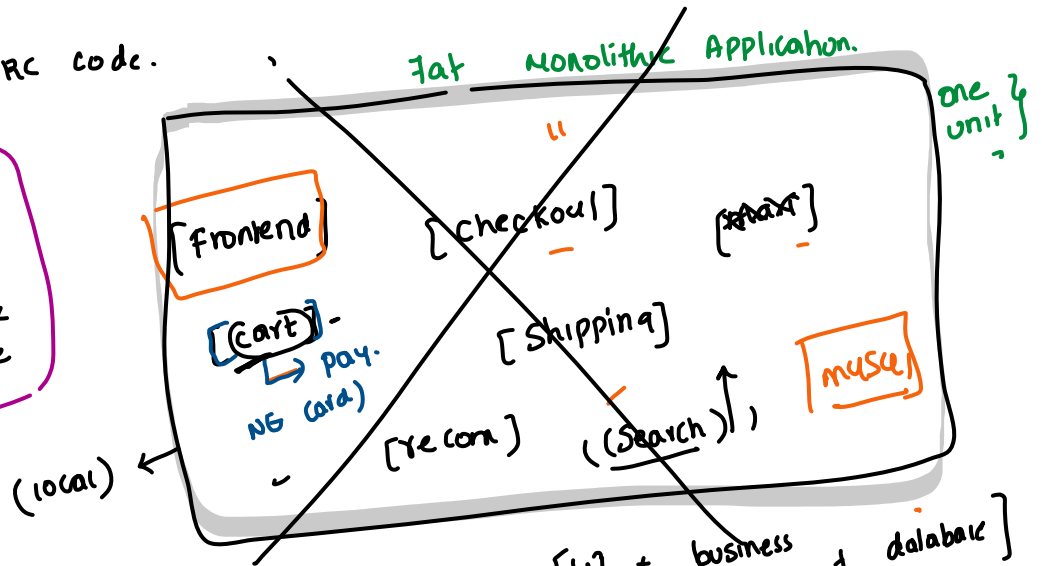 RC code.
Fat Monolithic Application.
one
unit }
[Frontend]
[checkout]
[cart] -
→ pay.
NG card)
[Shipping]
[recom]
((Search))
(local) ←
+ business
database ]